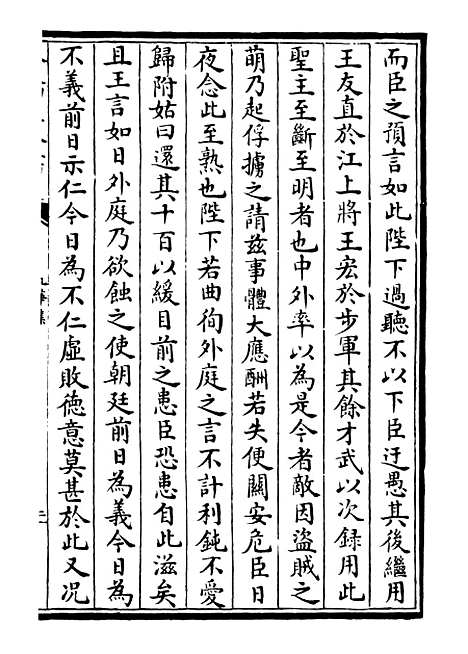 而臣之預言如此陛下過聽不以下臣迂愚其後繼用
王友直於江上將王宏於步軍其餘才武以次録用此
聖主至斷至明者也中外率以為是今者敵因盜賊之
萌乃起俘擄之請兹事體大應酬若失便關安危臣日
夜念此至熟也陛下若曲徇外庭之言不計利鈍不愛
歸附姑曰還其十百以緩目前之患臣恐患自此滋矣
且王言如日外庭乃欲蝕之使朝廷前日為義今日為
不義前日示仁今日為不仁虛敗徳意莫甚於此又况